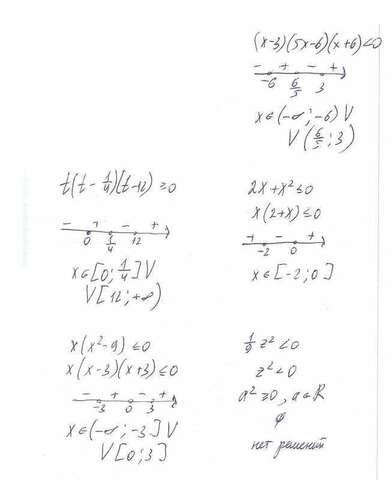 (x-3)(5x-6)(x+6)<0
- + - +
-6 6/5 3
x∈(-∞;-6) V
V(6/5;3)
t(t-1/4)(t-12)≥0
- + - +
0 1/4 12
x∈[0;1/4] V
V[12;+∞)
2x+x²≤0
x(2+x)≤0
+ - +
-2 0
x∈[-2;0]
x(x²-9)≤0
x(x-3)(x+3)≤0
- + - +
-3 0 3
x∈(-∞;-3] V
V[0;3]
1/9 z²<0
z²<0
a²≥0, a∈R
∅
нет решений